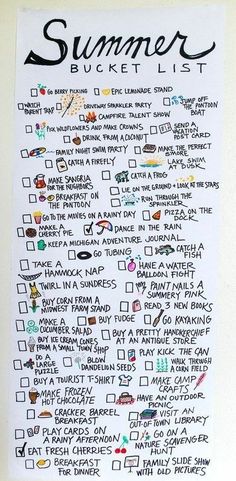 Summer
BUCKET LIST
GO BERRY PICKING
EPIC LEMONADE STAND
WATCH PARENT TRAP
DRIVEWAY SPARKLER PARTY
JUMP OFF THE PONTOON BOAT
CAMPFIRE TALENT SHOW
PICK WILDFLOWERS AND MAKE CROWNS
SEND A VACATION POST CARD
DRINK FROM A COCONUT
FAMILY NIGHT SWIM PARTY
MAKE THE PERFECT S'MORE
CATCH A FIREFLY
LAKE SWIM AT DUSK
MAKE SANGRIA FOR THE NEIGHBORS
CATCH A FROG
LIE ON THE GROUND + LOOK AT THE STARS
BREAKFAST ON THE PONTOON
RUN THROUGH THE SPRINKLER
GO TO THE MOVIES ON A RAINY DAY
PIZZA ON THE DOCK
MAKE A CHERRY PIE
DANCE IN THE RAIN
KEEP A MICHIGAN ADVENTURE JOURNAL
GO TUBING
CATCH A FISH
TAKE A HAMMOCK NAP
HAVE A WATER BALLOON FIGHT
TWIRL IN A SUNDRESS
PAINT NAILS A SUMMERY PINK
BUY CORN FROM A MIDWEST FARM STAND
READ 3 NEW BOOKS
MAKE A CUCUMBER SALAD
BUY FUDGE
GO KAYAKING
BUY ICE CREAM CONES FROM A SMALL TOWN SHOP
BUY A PRETTY HANDKERCHIEF AT AN ANTIQUE STORE
DO A LARGE PUZZLE
BLOW DANDELION SEEDS
PLAY KICK THE CAN
WALK THROUGH A CORN FIELD
BUY A TOURIST T-SHIRT
MAKE CAMP CRAFTS
MAKE FROZEN HOT CHOCOLATE
HAVE AN OUTDOOR PICNIC
CRACKER BARREL BREAKFAST
VISIT AN OUT-OF-TOWN LIBRARY
PLAY CARDS ON A RAINY AFTERNOON
GO ON A NATURE SCAVENGER HUNT
EAT FRESH CHERRIES
BREAKFAST FOR DINNER
FAMILY SLIDE SHOW WITH OLD PICTURES